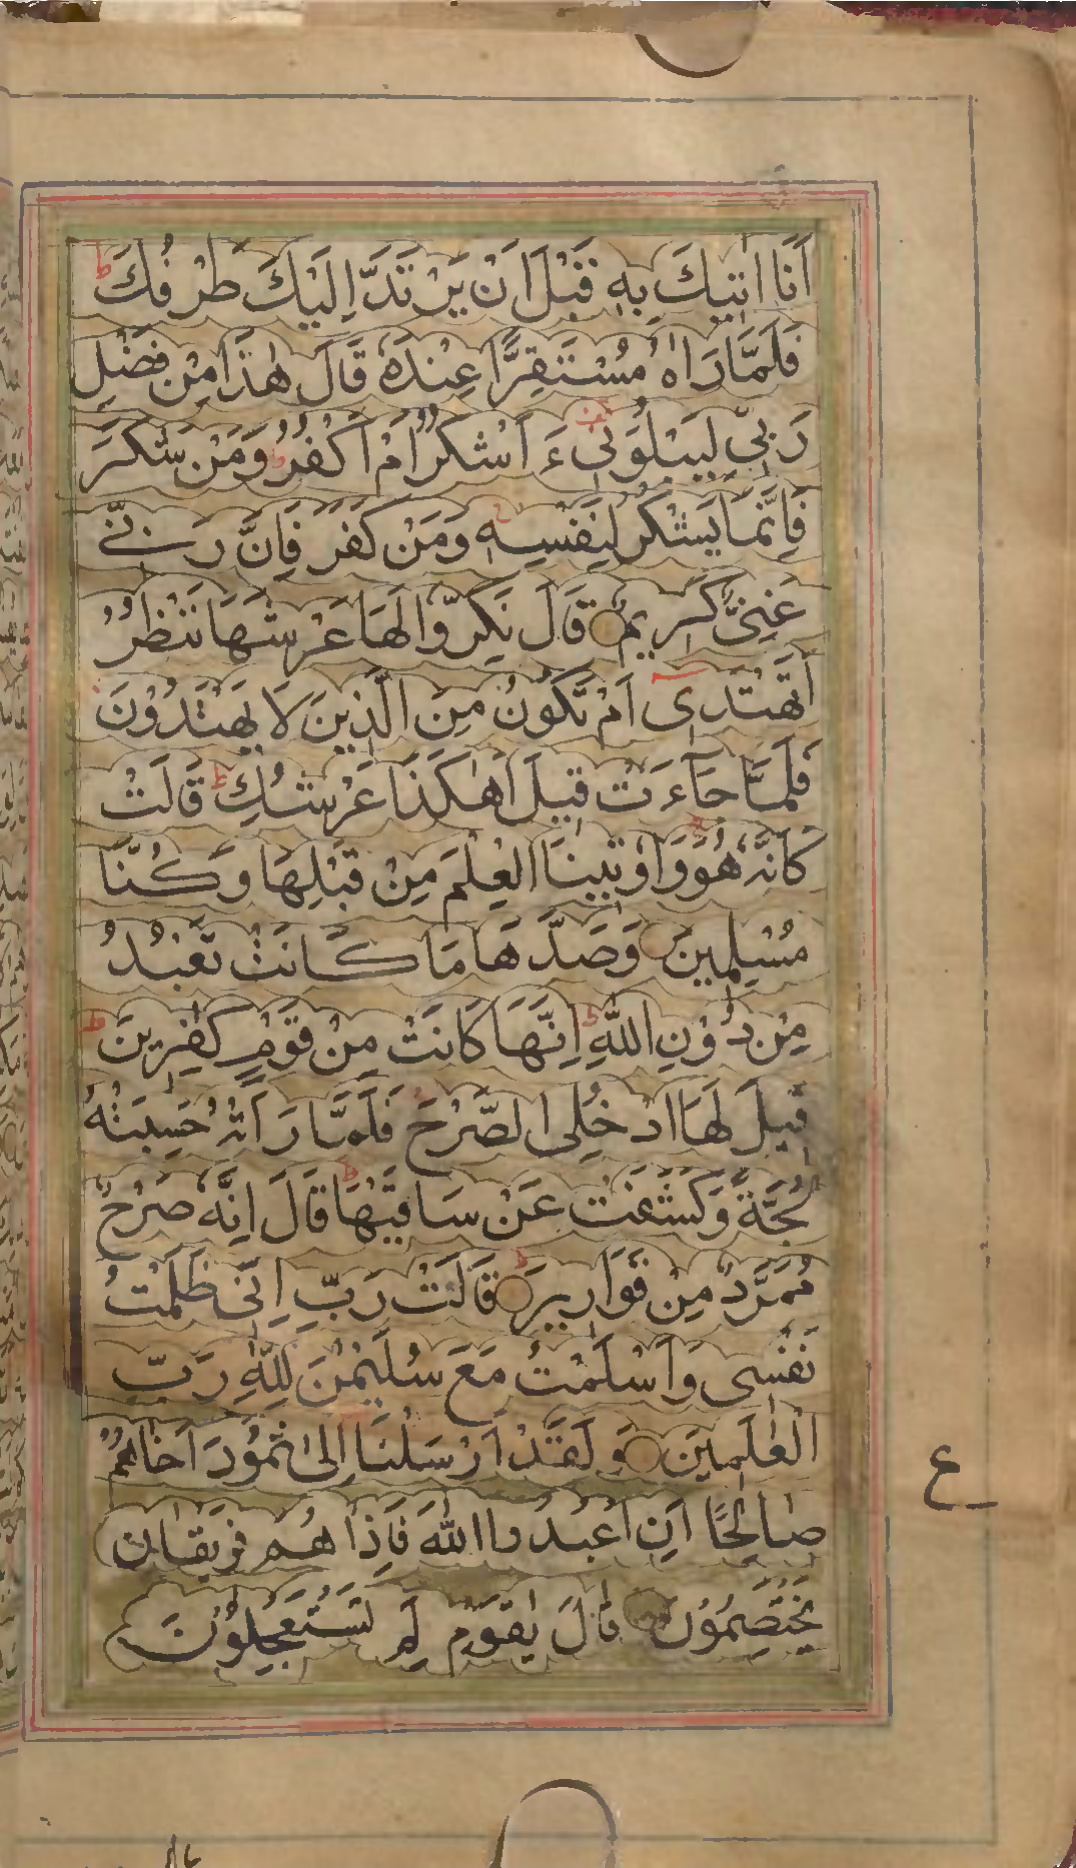 اَنَا اٰتِيْكَ بِهٖ قَبْلَ اَنْ يَرْتَدَّ اِلَيْكَ طَرْفُكَ ط
فَلَمَّا رَاٰهُ مُسْتَقِرًّا عِنْدَهٗ قَالَ هٰذَا مِنْ فَضْلِ
رَبِّيْ لِيَبْلُوَنِيْ ءَ اَشْكُرُ اَمْ اَكْفُرُ ط وَمَنْ شَكَرَ
فَاِنَّمَا يَشْكُرُ لِنَفْسِهٖ وَمَنْ كَفَرَ فَاِنَّ رَبِّيْ
غَنِيٌّ كَرِيْمٌ قَالَ نَكِّرُوْا لَهَا عَرْشَهَا نَنْظُرْ
اَتَهْتَدِىْ اَمْ تَكُوْنُ مِنَ الَّذِيْنَ لَا يَهْتَدُوْنَ
فَلَمَّا جَآءَتْ قِيْلَ اَهٰكَذَا عَرْشُكِ ط قَالَتْ
كَاَنَّهٗ هُوَ وَاُوْتِيْنَا الْعِلْمَ مِنْ قَبْلِهَا وَكُنَّا
مُسْلِمِيْنَ وَصَدَّهَا مَا كَانَتْ تَعْبُدُ
مِنْ دُوْنِ اللّٰهِ ط اِنَّهَا كَانَتْ مِنْ قَوْمٍ كٰفِرِيْنَ ط
قِيْلَ لَهَا ادْخُلِى الصَّرْحَ فَلَمَّا رَاَتْهُ حَسِبَتْهُ
لُجَّةً وَكَشَفَتْ عَنْ سَاقَيْهَا ط قَالَ اِنَّهٗ صَرْحٌ
مُمَرَّدٌ مِنْ قَوَارِيْرَ ط قَالَتْ رَبِّ اِنِّىْ ظَلَمْتُ
نَفْسِىْ وَاَسْلَمْتُ مَعَ سُلَيْمٰنَ لِلّٰهِ رَبِّ
الْعٰلَمِيْنَ وَلَقَدْ اَرْسَلْنَا اِلٰى ثَمُوْدَ اَخَاهُمْ
صَالِحًا اَنِ اعْبُدُوا اللّٰهَ فَاِذَا هُمْ فَرِيْقَانِ
يَخْتَصِمُوْنَ قَالَ يٰقَوْمِ لِمَ تَسْتَعْجِلُوْنَ
ع